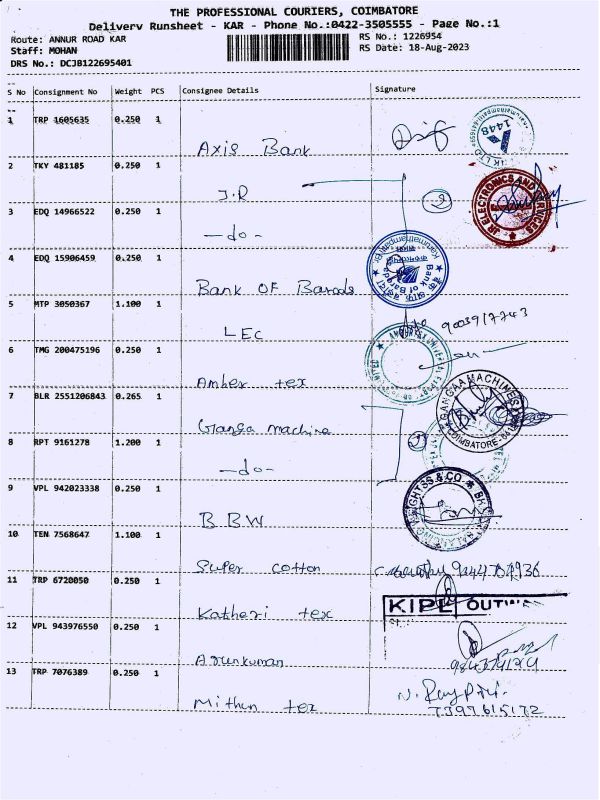 THE PROFESSIONAL COURIERS, COIMBATORE
Delivery Runsheet - KAR - Phone No.:0422-3505555 - Page No.:1
Route: ANNUR ROAD KAR
RS No.: 1226954
Staff: MOHAN
RS Date: 18-Aug-2023
DRS No.: DCJB122695401
S No Consignment No Weight PCS Consignee Details Signature
1 TRP 1605635 0.250 1
Axis Bank
1448
2 TKY 481185 0.250 1
J.R
2
JR ELECTRONICS AND SERVICES
3 EDQ 14966522 0.250 1
—do—
4 EDQ 15906459 0.250 1
Bank OF Baroda
Bank of Baroda
5 MTP 3050367 1.100 1
LEC
6 TMG 200475196 0.250 1
Amber tex
7 BLR 2551206843 0.265 1
Ganga machine
GANGAA MACHINERS
COIMBATORE-641
8 RPT 9161278 1.200 1
—do—
2
9 VPL 942023338 0.250 1
BBW
& CO
10 TEN 7568647 1.100 1
Super cotton
11 TRP 6720050 0.250 1
Katheri tex
KIPL OUTW
12 VPL 943976550 0.250 1
Arunkumar
13 TRP 7076389 0.250 1
Mithun tex
7397615172